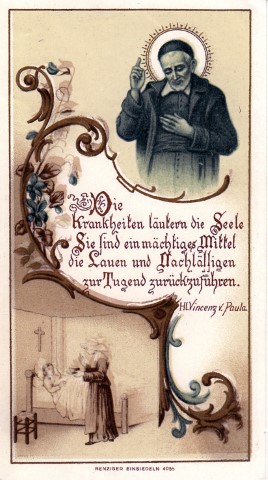 Die
Krankheiten läutern die Seele
Sie sind ein mächtiges Mittel
die Lauen und Nachläſſigen
zur Tugend zurückzuführen.
Hl. Vincenz v. Paula.
BENZIGER EINSIEDELN 4030